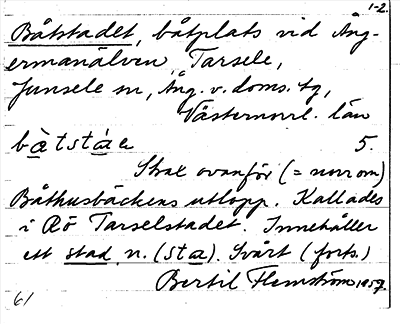 1-2.
Båtstadet, båtplats vid Ång-
ermanälven, Tarsele,
Junsele sn, Ång. v. doms. tg,
Västernorrl. län
bàtstàe 5.
Strax ovanför (= norr om)
Båthusbäckens utlopp. Kallades
i Rö Tarselstadet. Innehåller
ett stad n. (sta). Svårt (forts.)
Bertil Flemström 1957.
61